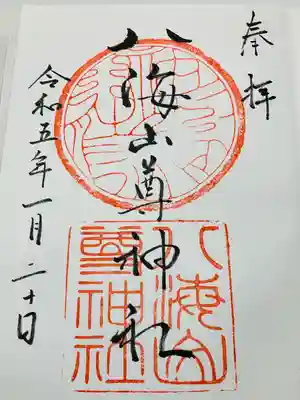 奉拝
八海山尊神社
令和五年一月二十日
八海山
尊神社